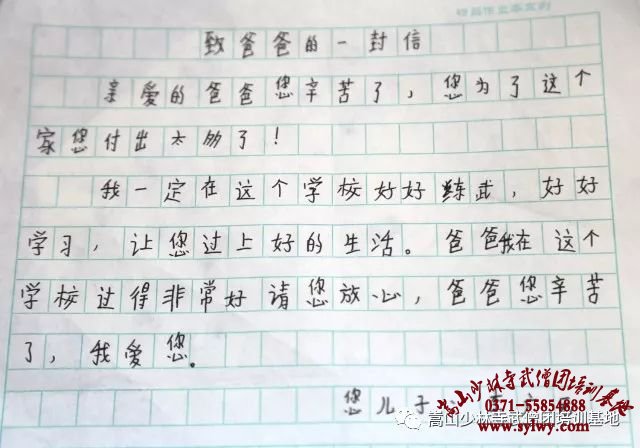 致爸爸的一封信
亲爱的爸爸您辛苦了，您为了这个
家您付出太多了！
我一定在这个学校好好练武，好好
学习，让您过上好的生活。爸爸我在这个
学校过得非常好请您放心，爸爸您辛苦
了，我爱您。
您儿子
嵩山少林寺武僧团培训基地
0371-55854888
嵩山少林寺武僧团培训基地
www.sylwy.com